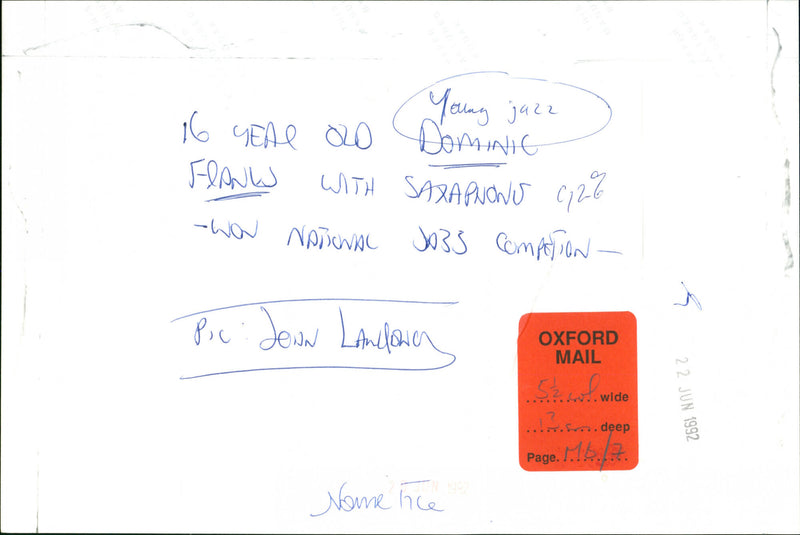 Young jazz
16 YEAR OLD DOMINIC
FRANKS WITH SAXAPHONE
-WON NATIONAL JAZZ COMPETION-
Pic: JOHN
OXFORD
MAIL
5½ col wide
12 cm deep
Page M6/7
22 JUN 1992
Name